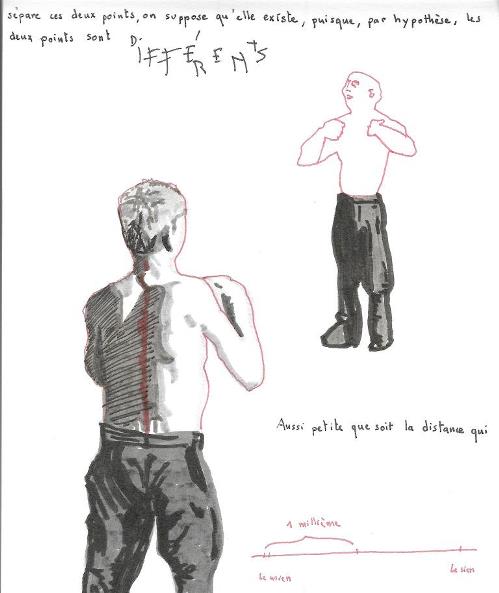 sépare ces deux points, on suppose qu'elle existe, puisque, par hypothèse, les
deux points sont DIFFÉRENTS
Aussi petite que soit la distance qui
1 millième
le mien
le sien